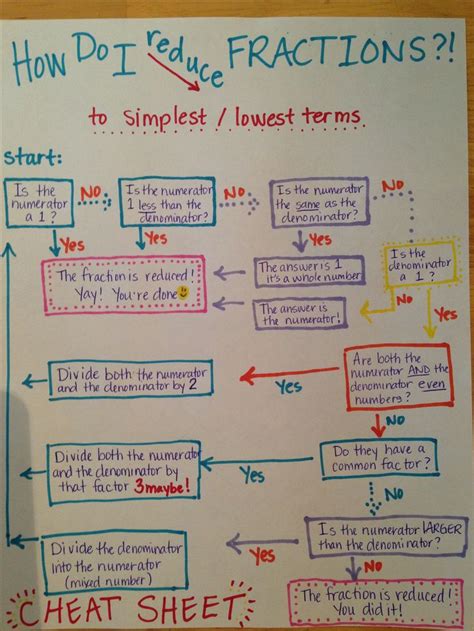 How Do I reduce FRACTIONS?!
to simplest / lowest terms.
start:
Is the
numerator
a 1?
NO
Is the numerator
1 less than the
denominator?
NO
Is the numerator
the same as the
denominator?
NO
Yes
Yes
Yes
Is the
denominator
a 1?
The fraction is reduced!
Yay! You're done
The answer is 1
it's a whole number
The answer is
the numerator!
No
Yes
Are both the
numerator AND the
denominator even
numbers?
Yes
Divide both the numerator
and the denominator by 2
NO
Do they have a
common factor?
Yes
Divide both the numerator
and the denominator by
that factor 3maybe!
No
Is the numerator LARGER
than the denominator?
Yes
Divide the denominator
into the numerator
(mixed number)
No
The fraction is reduced!
You did it!
CHEAT SHEET